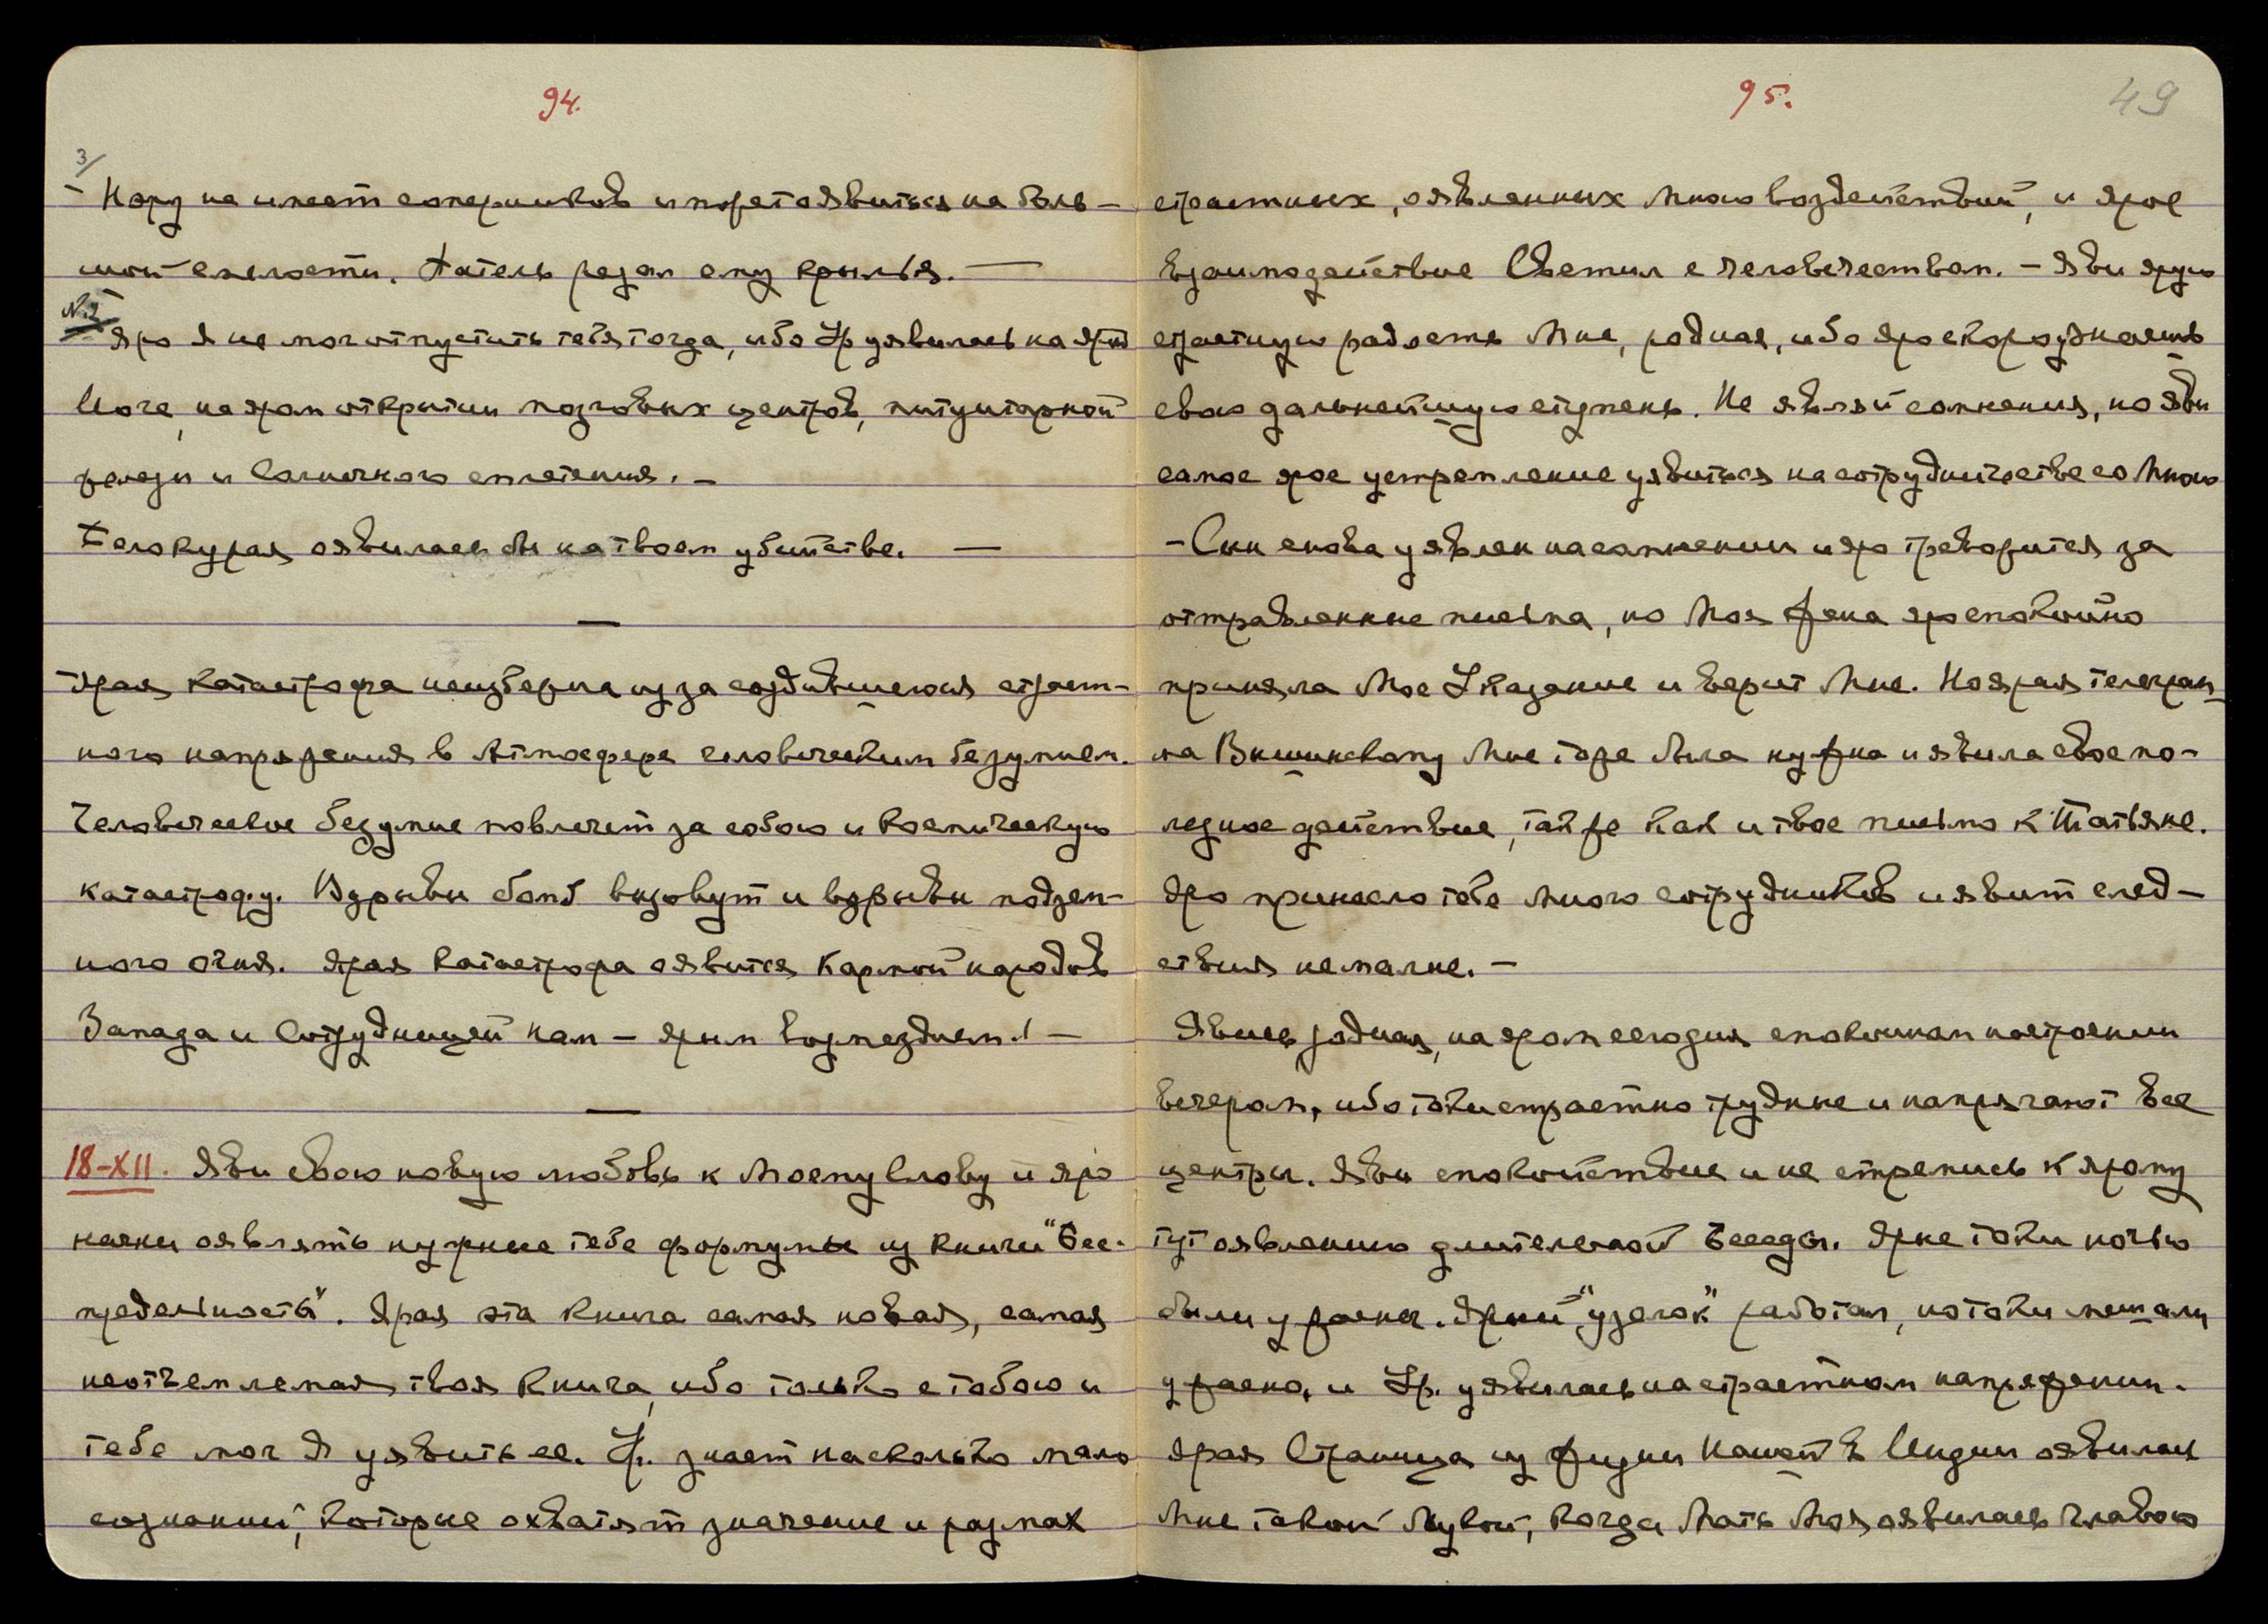 94.
3/
- Неру не имеет соперников и может явиться на боль-
шой смелости. Патель резал ему крылья. —
№ 3
Яро Я не мог отпустить тебя тогда, ибо Ур. уявилась на ярой
Йоге, на яром открытии мозговых центров, питуитарной
железы и Солнечного сплетения. -
Белокурая оявилась бы на твоем убийстве. —
—
Ярая катастрофа неизбежна из за создавшегося страст-
ного напряжения в Атмосфере человеческим безумием.
Человеческое безумие повлечет за собою и космическую
катастрофу. Взрывы бомб вызовут и взрывы подзем-
ного огня. Ярая катастрофа оявится Кармой народов
Запада и Сотрудницей нам - ярым возмездием! —
—
18-XII. Яви свою новую любовь к Моему Слову и яро
начни оявлять нужные тебе формулы из книги "Бес-
предельность". Ярая эта книга самая новая, самая
неотъемлемая твоя книга, ибо только с тобою и
тебе мог Я уявить ее. Ур. знает насколько мало
сознаний, которые охватят значение и размах
95.
49
страстных, оявленных Мною воздействий, и ярое
взаимодействие Светил с человечеством. - Яви ярую
страстную радость Мне, родная, ибо яро скоро узнаешь
свою дальнейшую ступень. Не являй сомнения, но яви
самое ярое устремление уявиться на сотрудничестве со Мною
- Сын снова уявлен на сомнении и яро тревожится за
отправленные письма, но Моя жена яро спокойно
приняла Мое Указание и верит Мне. Но ярая телеграм-
ма Вышинскому Мне тоже была нужна и явила свое по-
лезное действие, так же как и твое письмо к Татьяне.
Яро принесло тебе много сотрудников и явит след-
ствия немалые. -
Явись родная, на яром сегодня спокойном настроении
вечером, ибо токи страстно трудные и напрягают все
центры. Яви спокойствие и не стремись к ярому
тут оявлению длительной Беседы. Ярые токи ночью
были ужасны. Ярый "узелок" работал, но токи мешали
ужасно, и Ур. уявилась на страстном напряжении.
Ярая Страница из жизни Нашей в Индии оявилась
Мне такой Мукой, когда Мать Моя оявилась главою